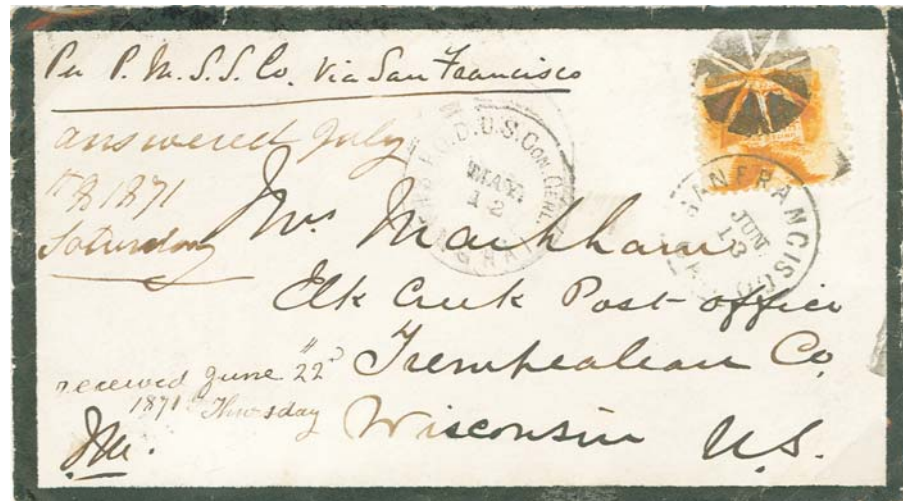 Per P. M. S. S. Co. Via San Francisco
answered July
1871
Saturday
U.S. CON. GENL.
MAY
12
SHANGHAI
SAN FRANCISCO
JUN
13
Mrs Markham
Elk Creek Post-office
Trempealeau Co
Wisconsin U.S.
received June 22d
1871 Thursday